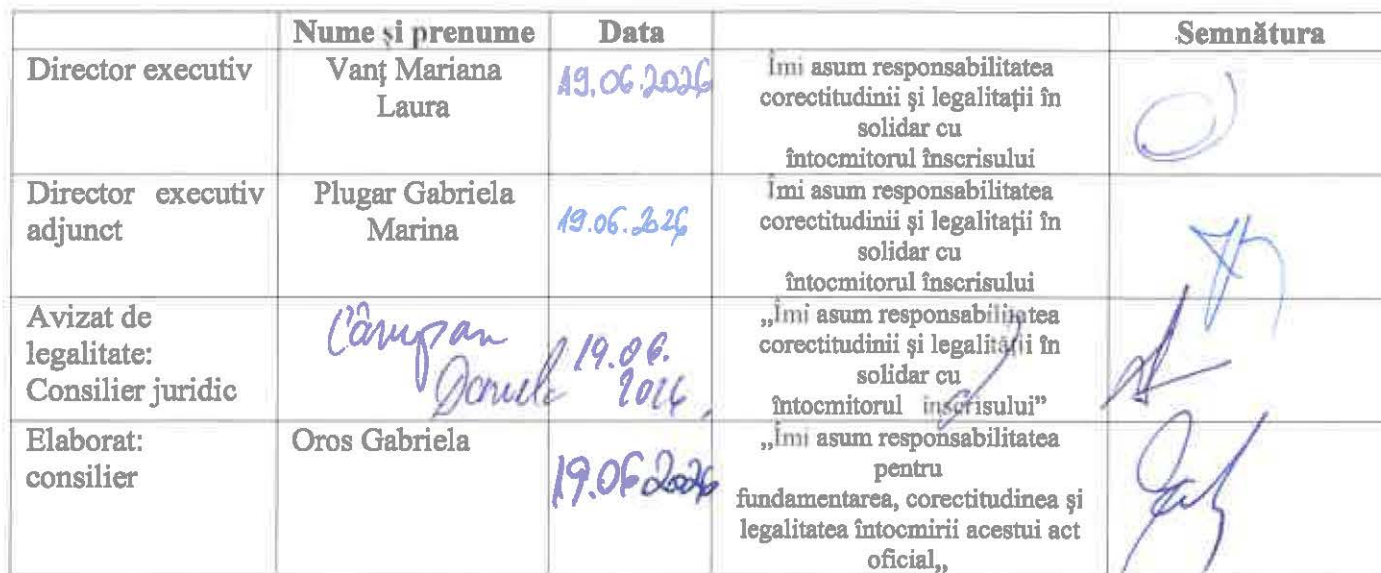 Nume și prenume Data Semnătura
Director executiv Vanț Mariana Laura 19.06.2026 Îmi asum responsabilitatea
corectitudinii și legalitații în
solidar cu
întocmitorul înscrisului
Director executiv adjunct Plugar Gabriela Marina 19.06.2026 Îmi asum responsabilitatea
corectitudinii și legalitații în
solidar cu
întocmitorul înscrisului
Avizat de
legalitate:
Consilier juridic
Câmpan
19.06.
„Îmi asum responsabilitatea
corectitudinii și legalității în
solidar cu
întocmitorul înscrisului”
Elaborat:
consilier
Oros Gabriela
19.06 2026
„Îmi asum responsabilitatea
pentru
fundamentarea, corectitudinea și
legalitatea întocmirii acestui act
oficial„